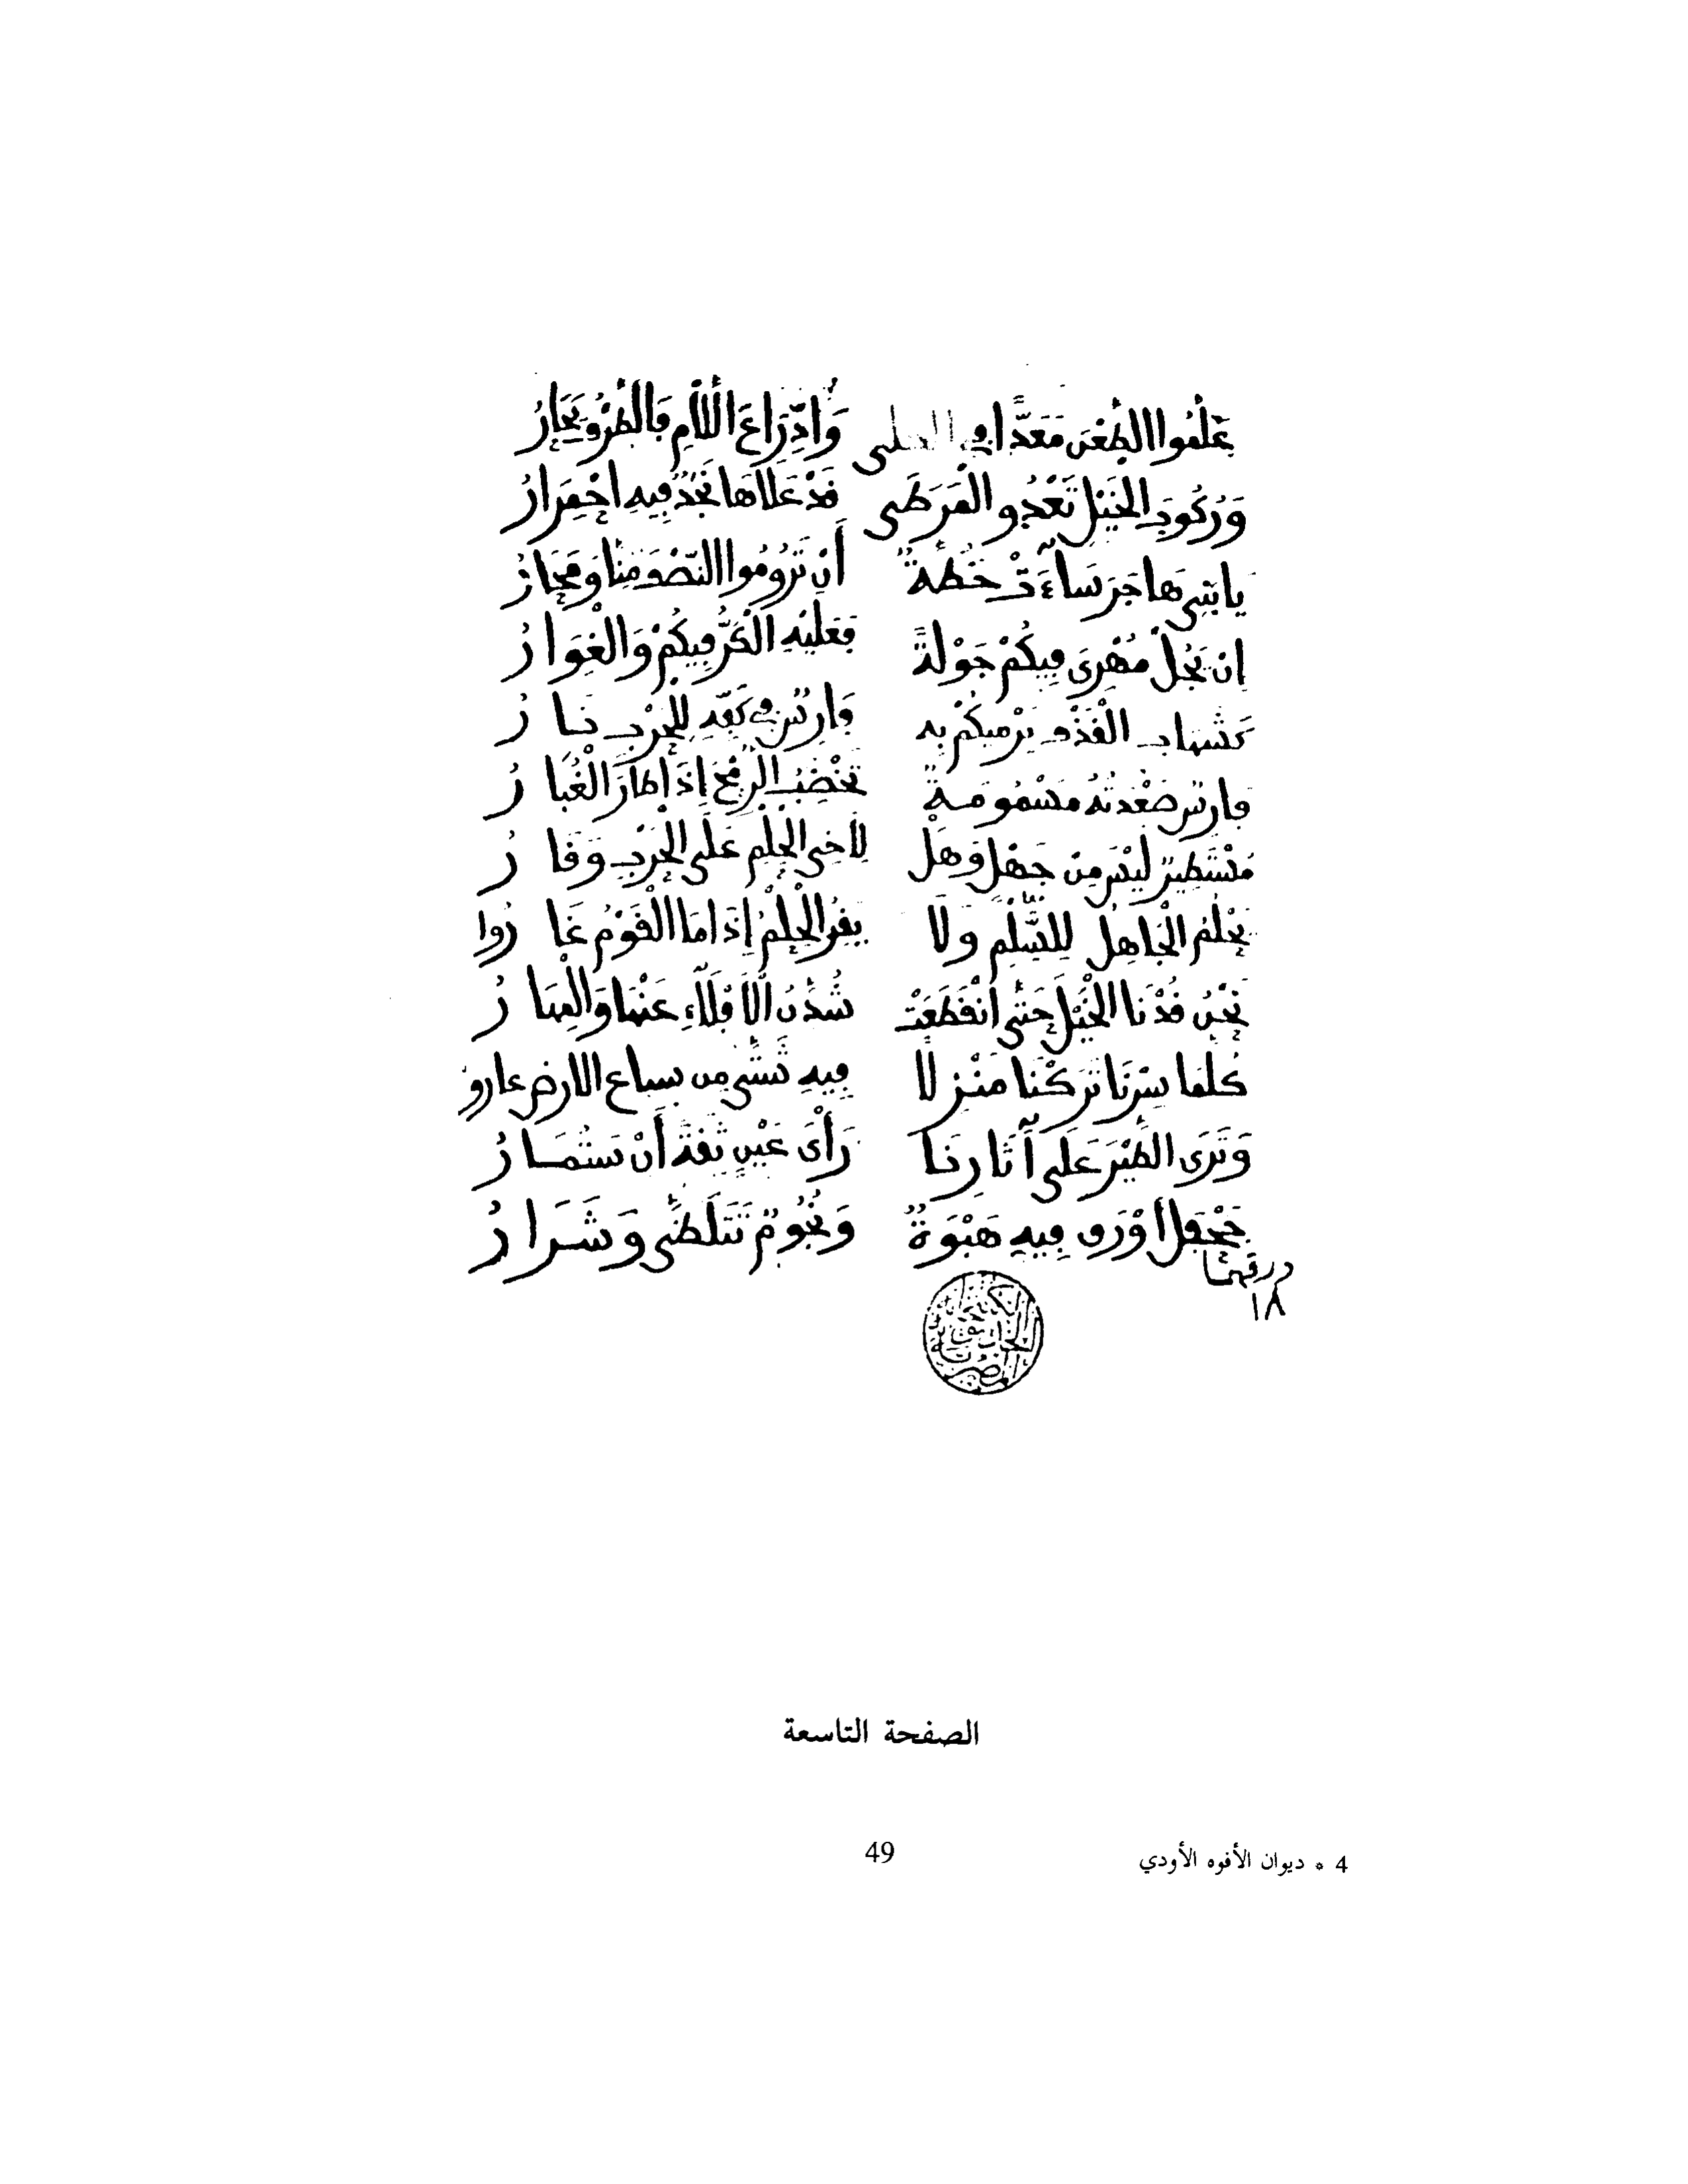 عَلِّمُوا الطَّعْنَ مَعَدًّا في الكلى وَادِّرَاعَ اللَّأْمِ فَالطَّرْفُ يَحَارُ
وَرُكُوبَ الخَيْلِ تَعْدُو المَرَطَى قَدْ عَلَاهَا نَجَدٌ فِيهِ احْمِرَارُ
يا بَنِي هَاجَرَ سَاءَتْ خُطَّةً أَنْ تَرُومُوا النِّصْفَ مِنَّا وَمُحَارُ
إِن يَجُلْ مُهْرِيَ فِيكُمْ جَوْلَةً فَعَلَيْهِ الْكَرُّ فِيكُمْ وَالْغِوَارُ
كَشِهَابِ الْقَذْفِ يَرْمِيكُمْ بِهِ فَارِسٌ في كَفِّهِ لِلْحَرْبِ نَارُ
فارس صَعْدَتُهُ مَسْمُومَةٌ تَخْضِبُ الرُّمْحَ إِذَا طَارَ الْغُبَارُ
مُسْتَطِيرٌ لَيْسَ مِنْ جَهْلٍ وَهَلْ لِأَخِي الْحِلْمِ عَلَى الْحَرْبِ وَقَارُ
يَحْلُمُ الْجَاهِلُ لِلسِّلْمِ وَلَا يَقِرُ الْحِلْمُ إِذَا مَا الْقَوْمُ غَارُوا
نَحْنُ قُدْنَا الْخَيْلَ حَتَّى انْقَطَعَتْ شُدُنُ الْأَفْلَاءِ عَنْهَا وَالْمِهَارُ
كُلَّمَا سِرْنَا تَرَكْنَا مَنْزِلًا فِيهِ شَتَّى مِن سباع الارض غاروا
وَتَرَى الطَّيْرَ عَلَى آثَارِنَا رَأْيَ عَيْنٍ ثِقَةً أَنْ سَتُمَارُ
جَحْفَلٌ أَوْرَقُ فِيهِ هَبْوَةٌ وَنُجُومٌ تَتَلَظَّى وَشَرَارُ
ورقهـا
١٨
الصفحة التاسعة
4 * ديوان الأفوه الأودي 49